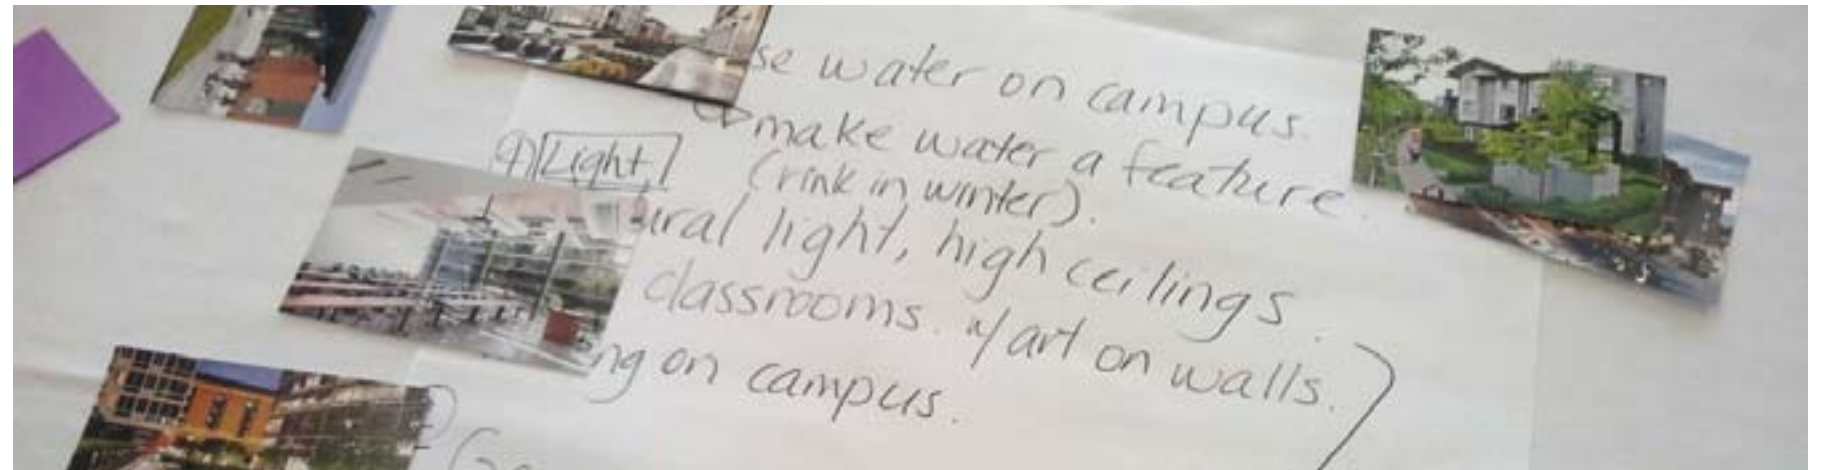 se water on campus.
make water a feature.
(rink in winter).
9) Light
ural light, high ceilings.
classrooms. w/ art on walls.
ng on campus.